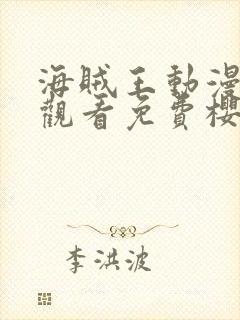 海賊王動漫
觀看免費櫻
李洪波